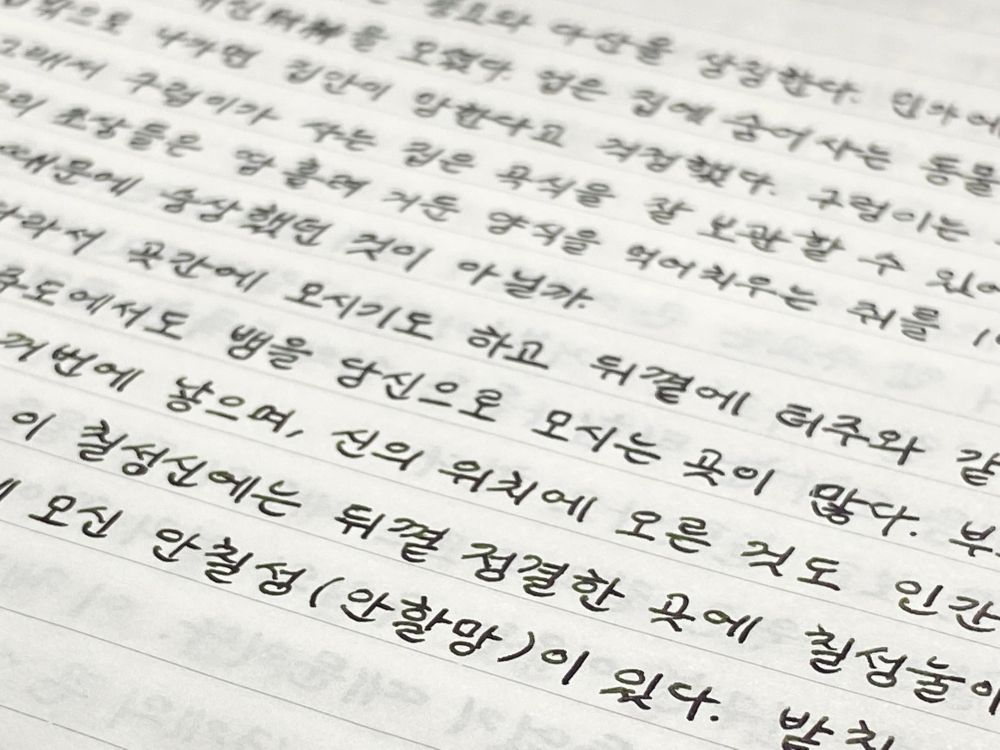 풍요와 다산을 상징한다. 민가에
모셨다. 업은 집에 숨어사는 동물
밖으로 나가면 집안이 망한다고 걱정했다. 구렁이는
그래서 구렁이가 사는 집은 곡식을 잘 보관할 수 있어
조상들은 땀 흘려 거둔 양식을 먹어치우는 쥐를
때문에 숭상했던 것이 아닐까.
따라서 곳간에 모시기도 하고 뒤꼍에 터주와 같
주도에서도 뱀을 당신으로 모시는 곳이 많다. 부
꺼번에 낳으며, 신의 위치에 오른 것도 인간
이 칠성신에는 뒤꼍 정결한 곳에 칠성눌이
모신 안칠성(안할망)이 있다. 밭치